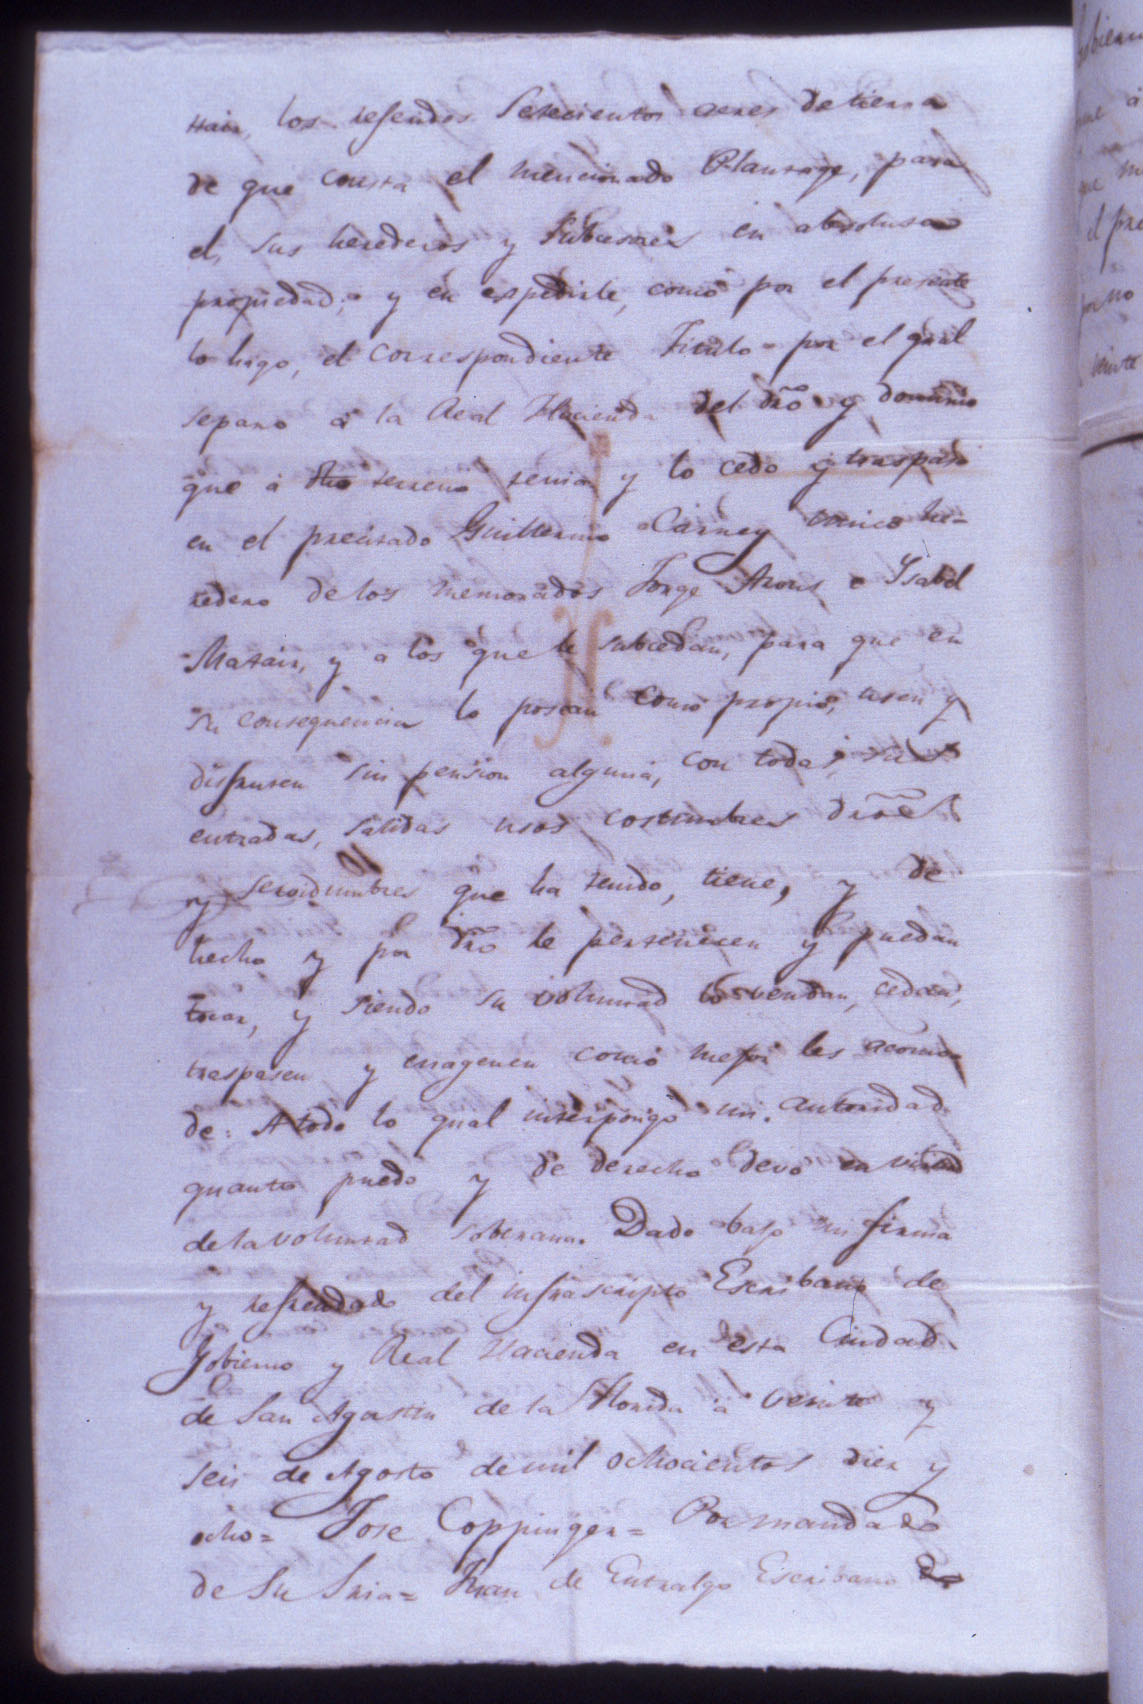 tair, los referidos Setecientos acres de tierra
de que consta el mencionado Plantage, para
el, sus herederos y Subcesores en absoluta
propiedad; y en expedirle, como por el presente
lo hago, el correspondiente Titulo = por el qual
separo à la Real Hacienda del dr̃o y dominio
que á dho terreno tenia y lo cedo y traspaso
en el precitado Guillermo Carney unico he-
redero de los memorados Jorge Arons e Ysabel
Matair, y a los que le subcedan, para que en
su consequencia lo posean como propio, usen y
disfruten sin pension alguna, con todas sus
entradas, salidas usos costumbres dr̃os
y servidumbres que ha tenido, tiene, y de
hecho y por dr̃o le pertenecen y puedan
tocar, y siendo su voluntad lo vendan, cedan,
traspasen y enagenen como mejor les acomo-
de: A todo lo qual interpongo mi autoridad
quanto puedo y de derecho devo en virtud
de la voluntad soberana. Dado bajo mi firma
y refrendado del infrascripto Escribano de
Gobierno y Real Hacienda en esta Ciudad
de San Agustin de la Florida à veinte y
seis de Agosto de mil ochocientos diez y
ocho = Jose Coppinger = Por mandado
de Su Sria = Juan de Entralgo Escribano de